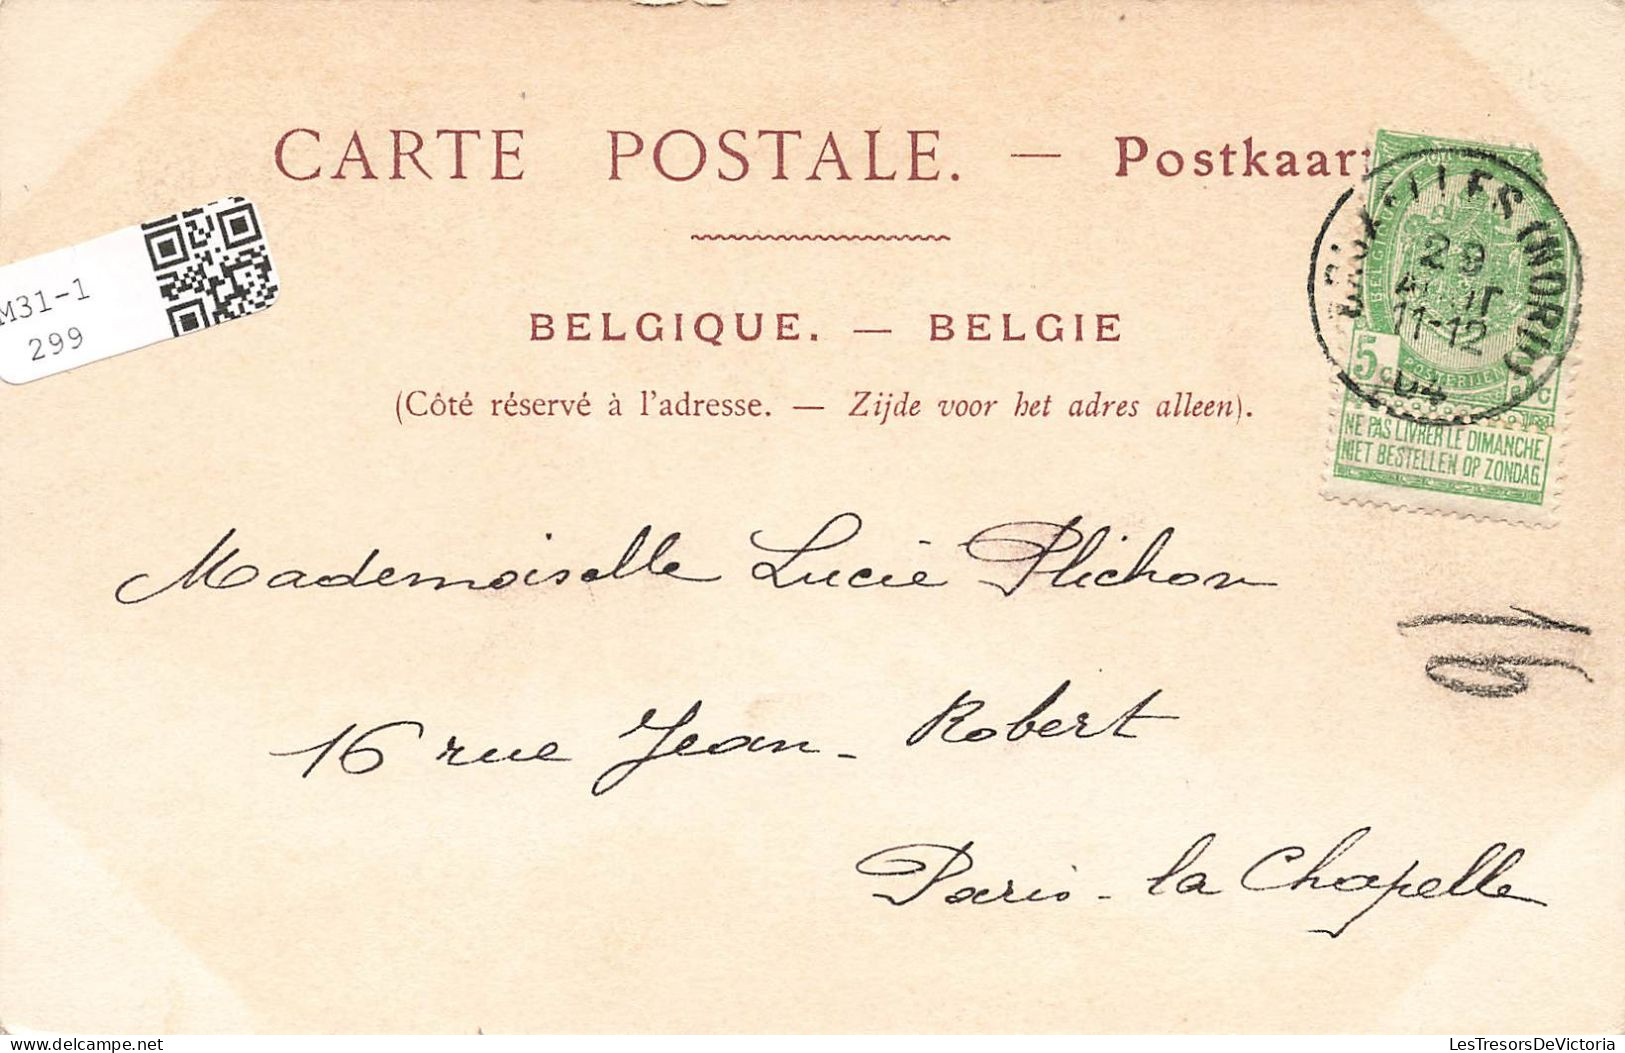 CARTE POSTALE. — Postkaart
BELGIQUE. — BELGIE
(Côté réservé à l'adresse. — Zijde voor het adres alleen).
M31-1
299
BRUXELLES (NORD)
29
AOUT
11-12
04
BELGIQUE
POSTERIJEN
5 c
5 c
NE PAS LIVRER LE DIMANCHE.
NIET BESTELLEN OP ZONDAG.
Mademoiselle Lucie Plichon
16 rue Jean-Robert
Paris-la Chapelle
delcampe.net
LesTresorsDeVictoria